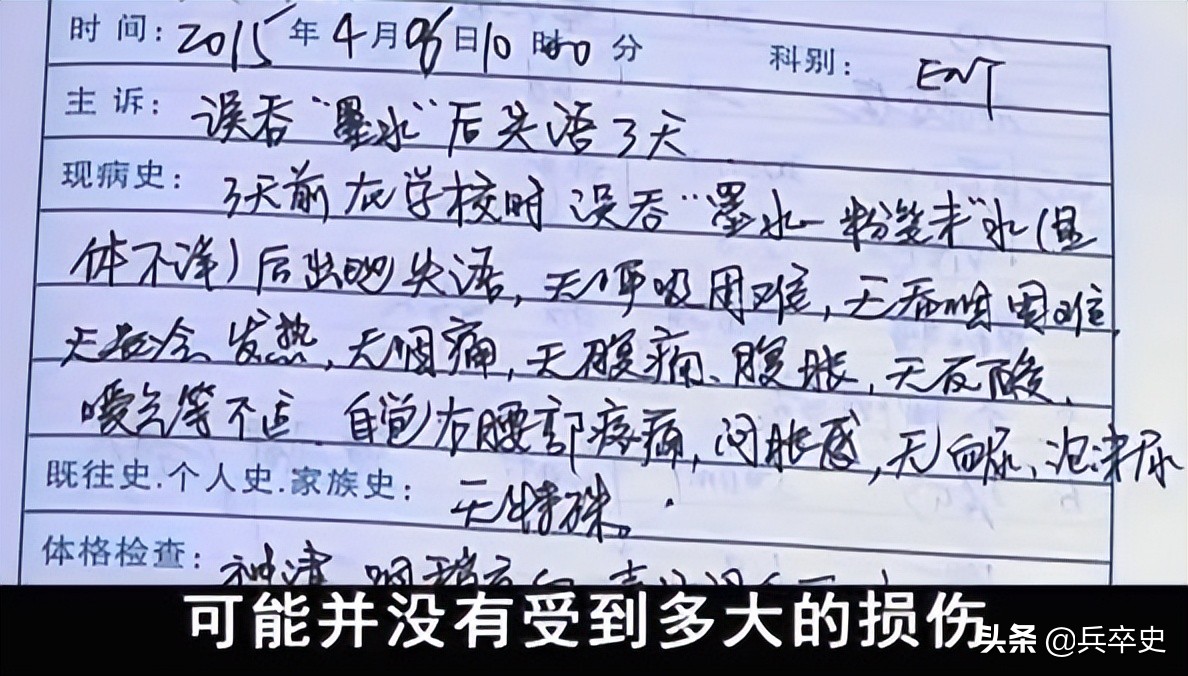 时间：2015年4月06日10时00分 科别：ENT
主诉：误吞“墨水”后失语3天
现病史：3天前在学校时误吞“墨水—粉笔末”水（具
体不详）后出现失语，无呼吸困难，无吞咽困难，
无恶寒发热，无咽痛，无腹痛、腹胀，无反酸、
嗳气等不适，自觉右腰部疼痛，闷胀感，无血尿、泡沫尿
既往史.个人史.家族史：无特殊。
体格检查：神清
可能并没有受到多大的损伤
头条 @兵卒史